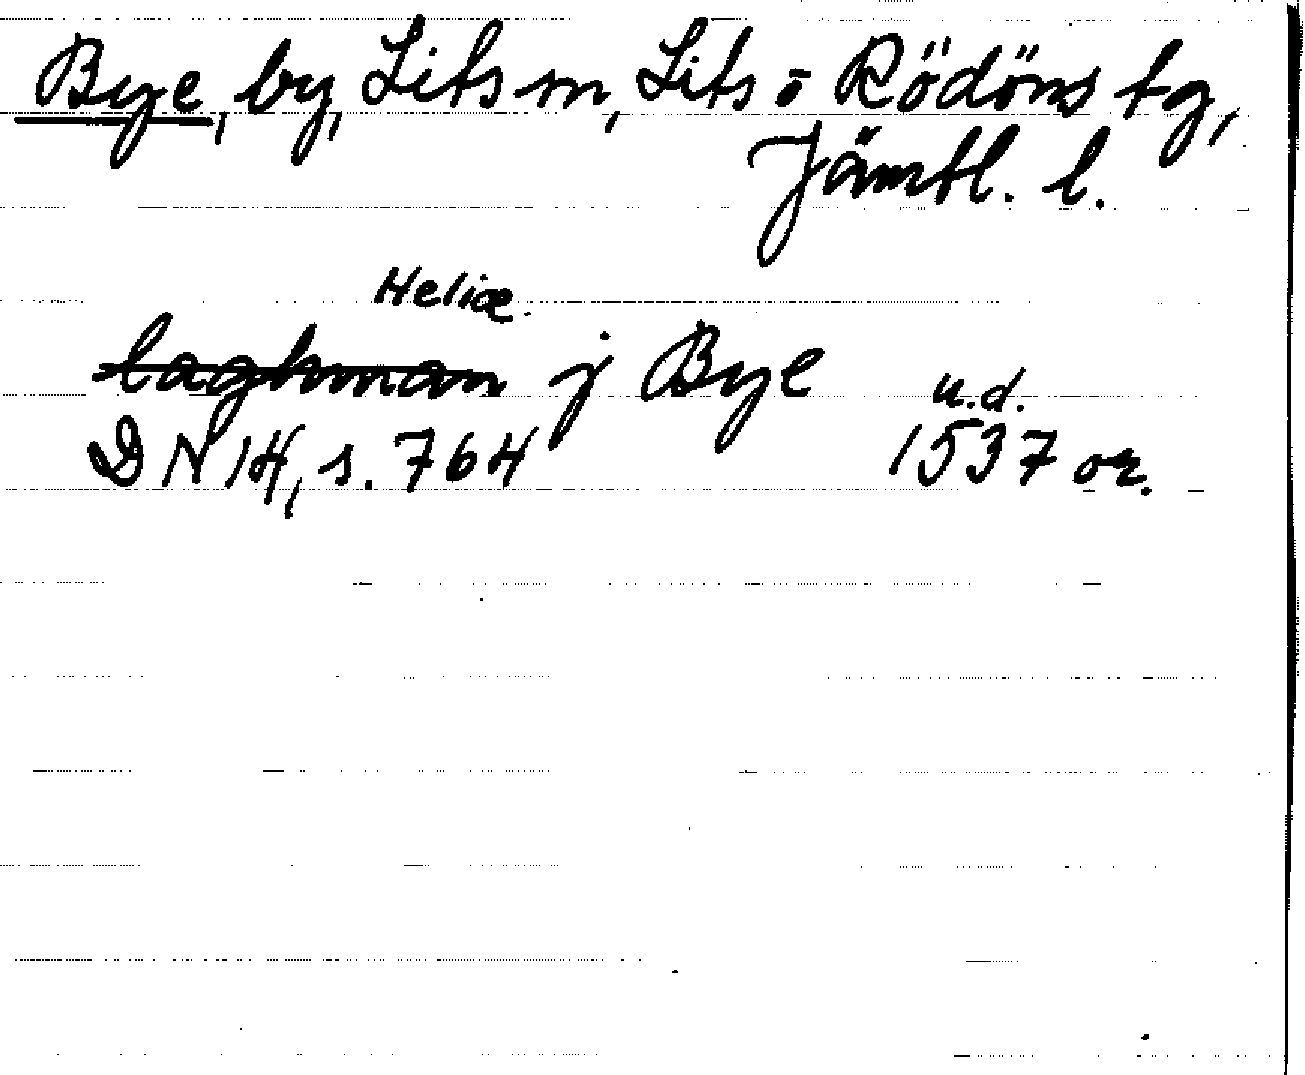 Bye, by, Lits sn, Lits o Rödöns tg,
Jämtl. l.
Heliæ
laghman j Bye u.d.
DN 14, s. 764 1537 or.